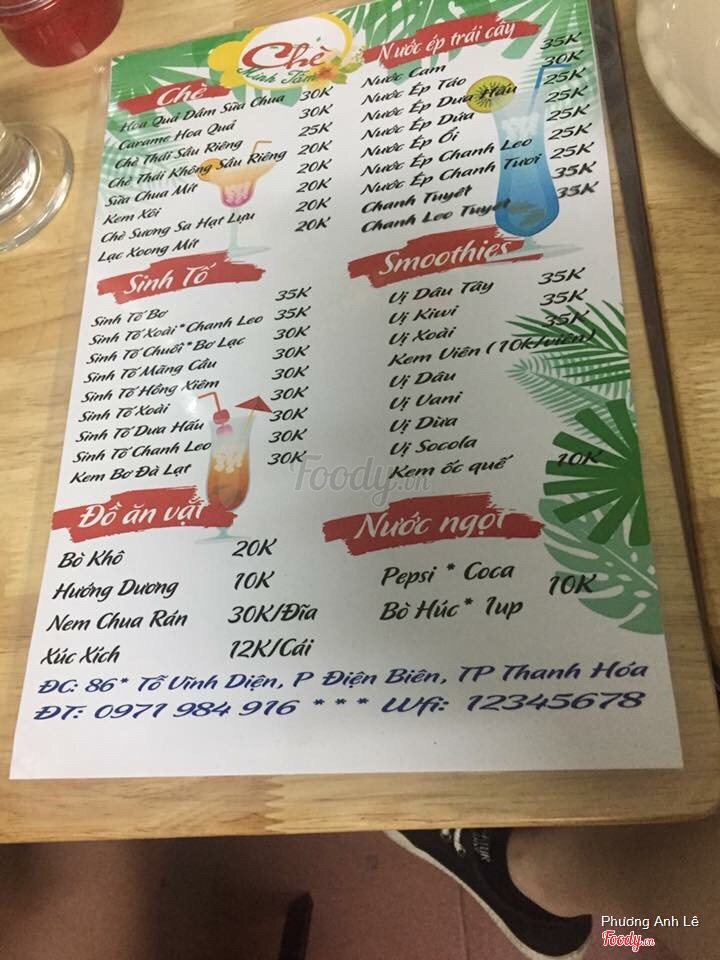 Chè
Minh Tâm
Chè
Hoa Quả Dầm Sữa Chua 30K
Carame Hoa Quả 30K
Chè Thái Sầu Riêng 25K
Chè Thái Không Sầu Riêng 20K
Sữa Chua Mít 20K
Kem Xôi 20K
Chè Sương Sa Hạt Lựu 20K
Lạc Xoong Mít
Sinh Tố
Sinh Tố Bơ 35K
Sinh Tố Xoài * Chanh Leo 35K
Sinh Tố Chuối * Bơ Lạc 30K
Sinh Tố Mãng Cầu 30K
Sinh Tố Hồng Xiêm 30K
Sinh Tố Xoài 30K
Sinh Tố Dưa Hấu 30K
Sinh Tố Chanh Leo 30K
Kem Bơ Đà Lạt
Đồ ăn vặt
Bò Khô 20K
Hướng Dương 10K
Nem Chua Rán 30K/Đĩa
Xúc Xích 12K/Cái
Nước ép trái cây
Nước Cam 35K
Nước Ép Táo 30K
Nước Ép Dưa Hấu 25K
Nước Ép Dứa 25K
Nước Ép Ổi 25K
Nước Ép Chanh Leo 25K
Nước Ép Chanh Tươi 25K
Chanh Tuyết 35K
Chanh Leo Tuyết 35K
Smoothies
Vị Dâu Tây 35K
Vị Kiwi 35K
Vị Xoài 35K
Kem Viên (10k/viên)
Vị Dâu
Vị Vani
Vị Dừa
Vị Socola
Kem ốc quế 10K
Nước ngọt
Pepsi * Coca 10K
Bò Húc * 1up
ĐC: 86* Tô Vĩnh Diện, P Điện Biên, TP Thanh Hóa
ĐT: 0971 984 916 *** Wfi: 12345678
Foody.vn
Phương Anh Lê
Foody.vn